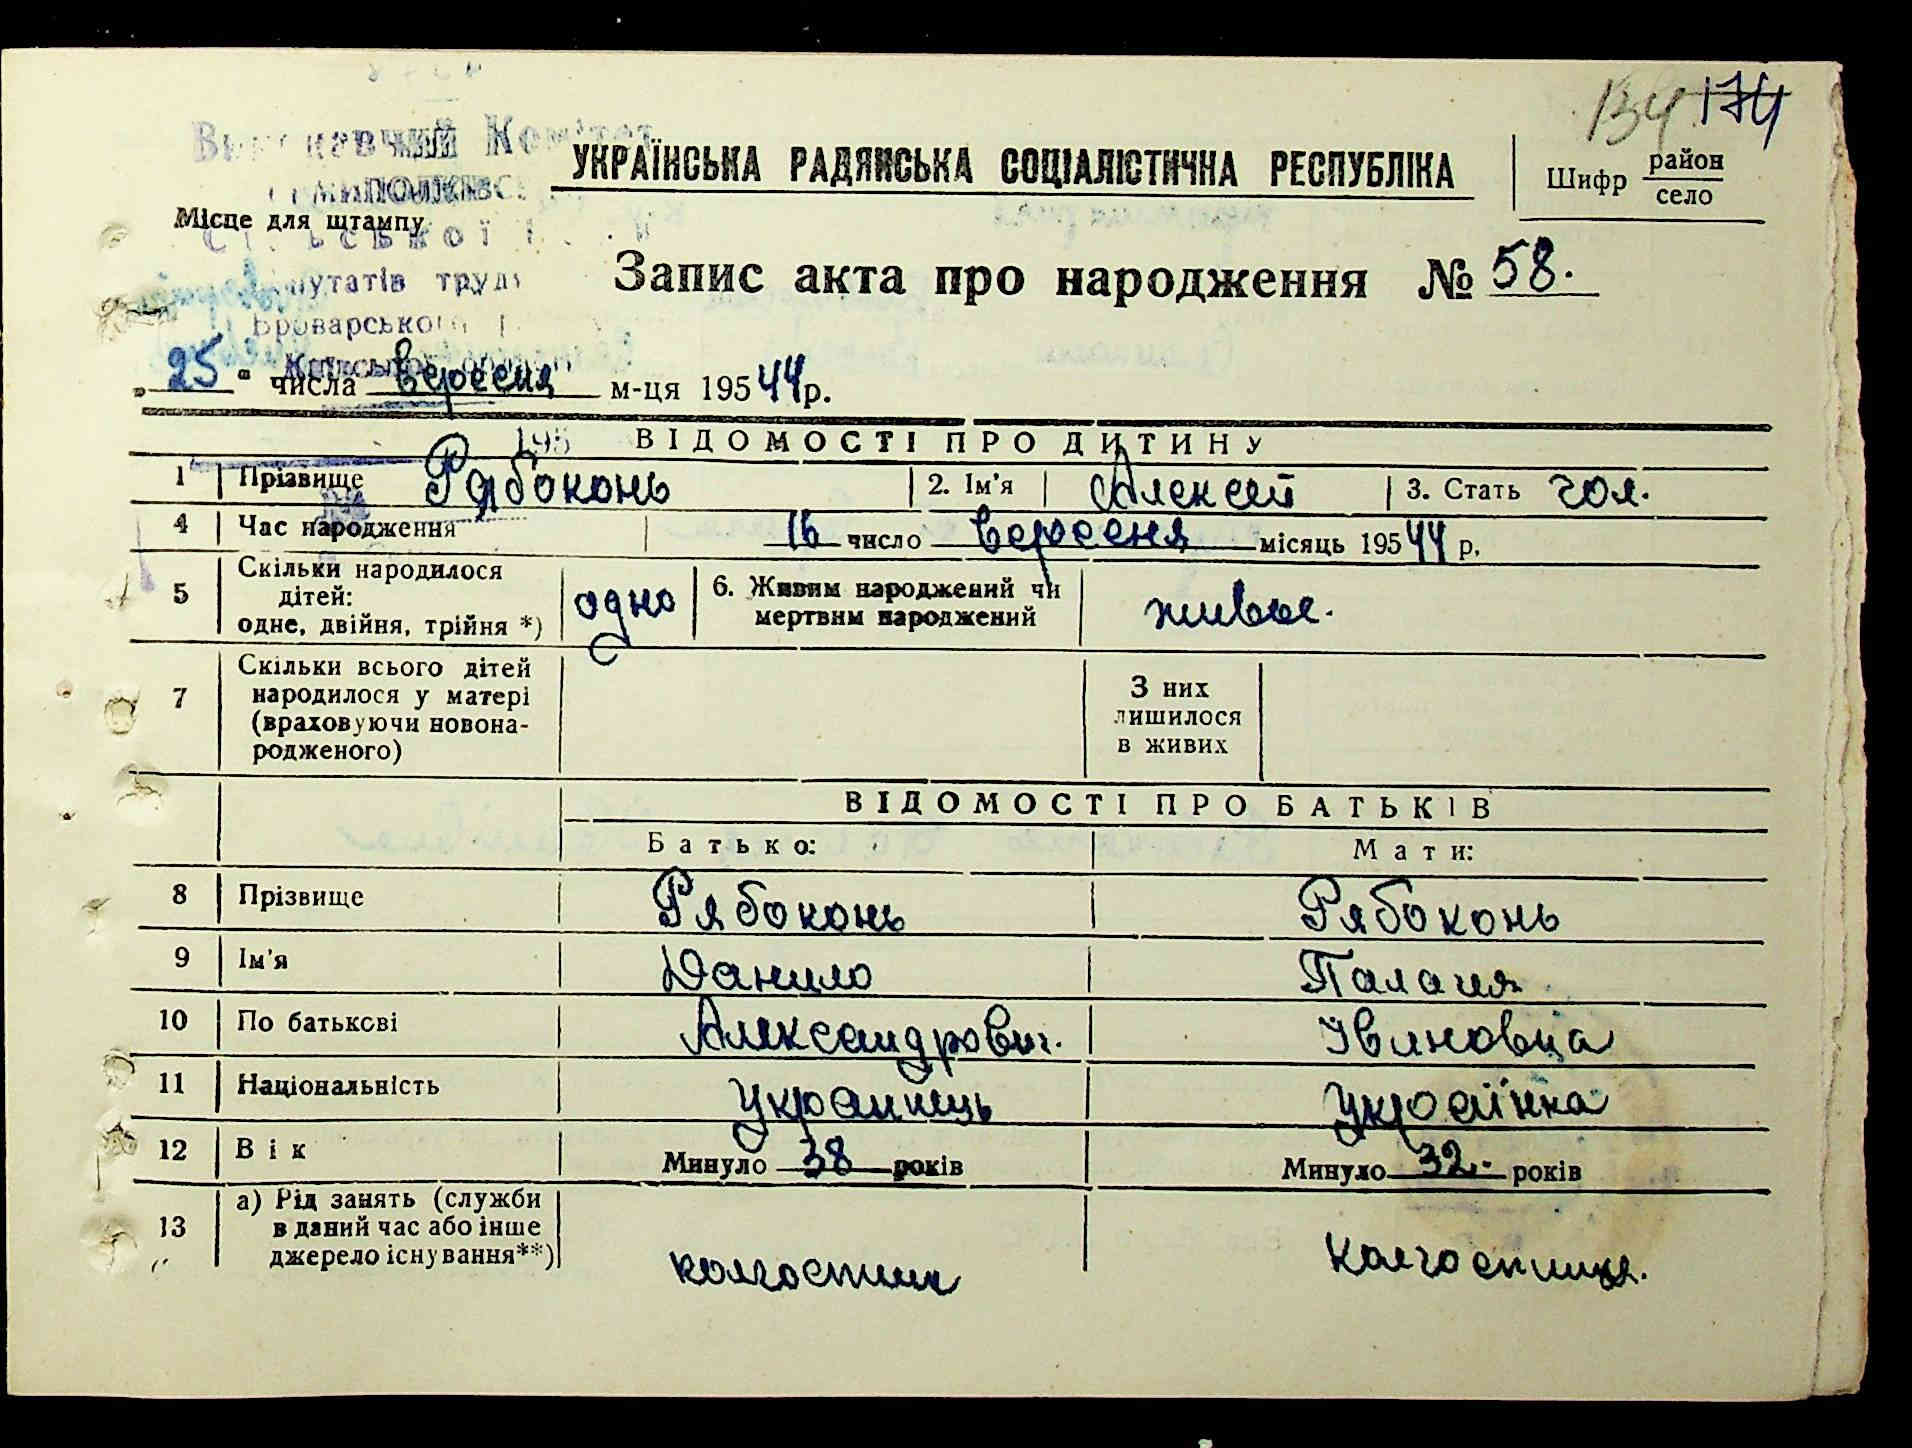 134 174
Виконавчий Комітет
УКРАЇНСЬКА РАДЯНСЬКА СОЦІАЛІСТИЧНА РЕСПУБЛІКА
Шифр район
село
Місце для штампу
Запис акта про народження № 58.
Броварського
„25" числа вересня м-ця 195 44 р.
195
ВІДОМОСТІ ПРО ДИТИНУ
1 Прізвище Рябоконь 2. Ім'я Алексей 3. Стать чол.
4 Час народження 16 число вересня місяць 195 44 р.
5 Скільки народилося
дітей:
одне, двійня, трійня *) одно 6. Живим народжений чи
мертвим народжений живые.
7 Скільки всього дітей
народилося у матері
(враховуючи новона-
родженого) З них
лишилося
в живих
ВІДОМОСТІ ПРО БАТЬКІВ
Батько: Мати:
8 Прізвище Рябоконь Рябоконь
9 Ім'я Данило Палагия
10 По батькові Александрович. Івановна
11 Національність Украинець Украінка
12 Вік Минуло 38 років Минуло 32. років
13 а) Рід занять (служби
в даний час або інше
джерело існування**) колгоспник колгоспниця.